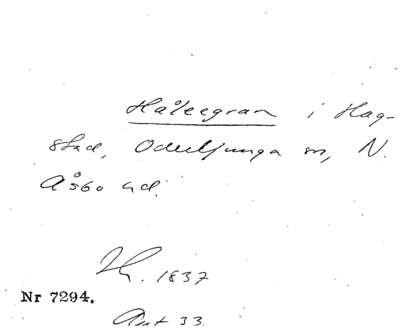 Håleegran i Hag-
stad, Oderljunga sn, N.
Åsbo hd.
1837
Nr 7294.
Ant 33.